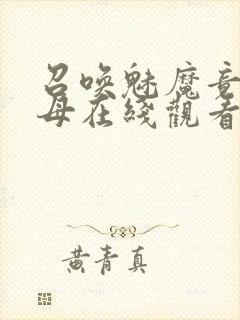 召唤魅魔竟
母在线觀看
黄青真